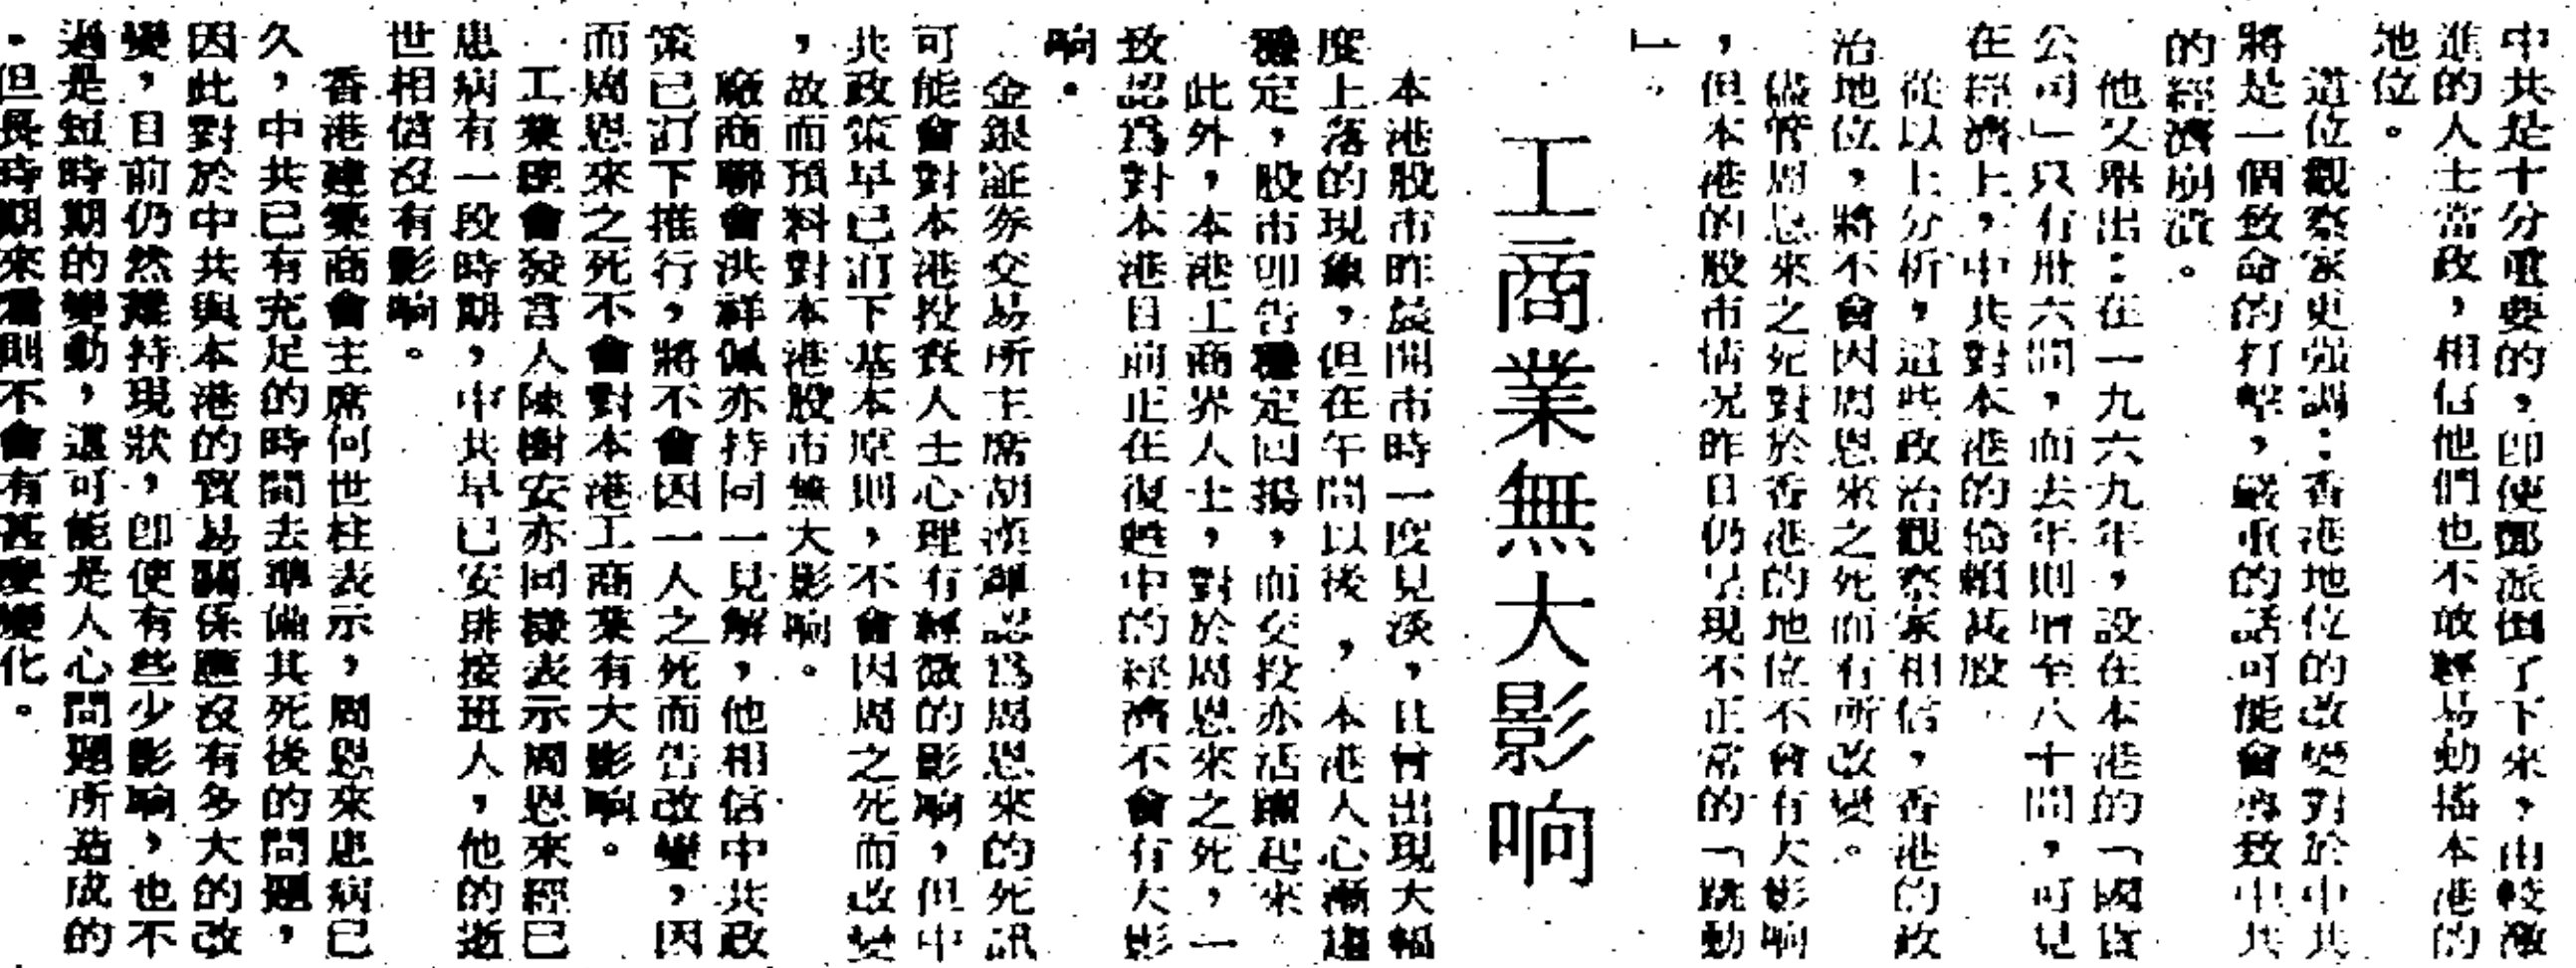 中共是十分重要的，即使鄧派倒了下來，由較激
進的人士當政，相信他們也不敢輕易動搖本港的
地位。
這位觀察家更強調：香港地位的改變對於中共
將是一個致命的打擊，嚴重的話可能會導致中共
的經濟崩潰。
他又舉出：在一九六九年，設在本港的「國貨
公司」只有卅六間，而去年則增至八十間，可見
在經濟上，中共對本港的倚賴甚殷
從以上分析，這些政治觀察家相信，香港的政
治地位，將不會因周恩來之死而有所改變。
儘管周恩來之死對於香港的地位不會有大影响
，但本港的股市情况昨日仍呈現不正常的「跳動
」。
工商業無大影响
本港股市昨晨開市時一度見淡，且曾出現大幅
度上落的現象，但在午間以後，本港人心漸趨
穩定，股市即告穩定回揚，而交投亦活躍起來
此外，本港工商界人士，對於周恩來之死，一
致認爲對本港目前正在復甦中的經濟不會有大影
响。
金銀証券交易所主席胡漢輝認爲周恩來的死訊
可能會對本港投資人士心理有輕微的影响，但中
共政策早已訂下基本原則，不會因周之死而改變
，故而預料對本港股市無大影响。
廠商聯會洪祥佩亦持同一見解，他相信中共政
策已訂下推行，將不會因一人之死而告改變，因
而周恩來之死不會對本港工商業有大影响。
工業總會發言人陳樹安亦同樣表示周恩來經已
患病有一段時期，中共早已安排接班人，他的逝
世相信沒有影响。
香港建築商會主席何世柱表示，周恩來患病已
久，中共已有充足的時間去準備其死後的問題，
因此對於中共與本港的貿易關係應沒有多大的改
變，目前仍然維持現狀，即使有些少影响，也不
過是短時期的變動，還可能是人心問題所造成的
。但長時期來看則不會有甚麼變化。